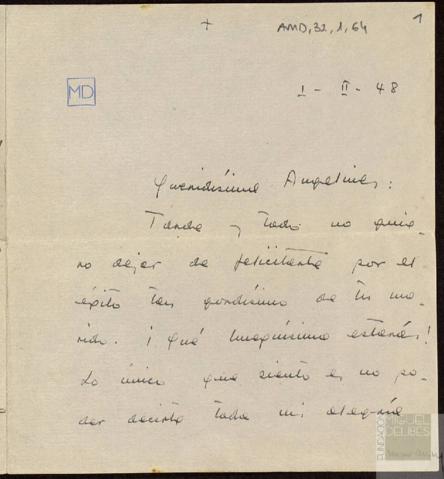 + AMD,32,1,64 1
MD
I - II - 48
Queridísima Angelines:
Tarde y todo no quie-
ro dejar de felicitarte por el
éxito tan gordísimo de tu ma-
rido. ¡Qué huequísima estarás!
Lo único que siento es no po-
der decirte toda mi alegría
FUNDACIÓN
MIGUEL
DELIBES